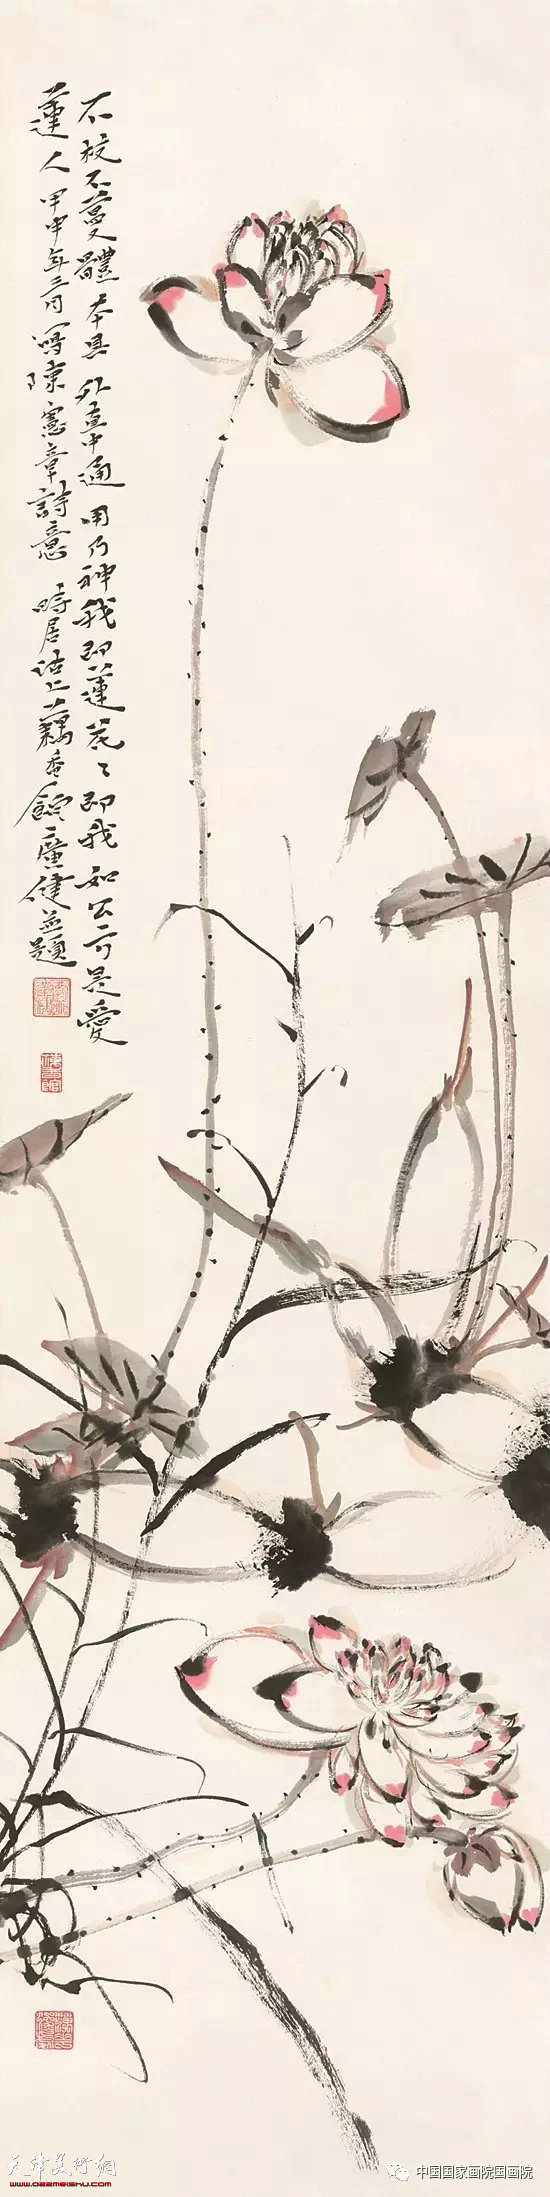 不枝不蔓體本具外直中通用乃神我即蓮花〻即我如公可是愛
蓮人甲申年三月寫陳憲章詩意時居沽上藕香館廣健并題
天津美術網
www.022meishu.com
中国国家画院国画院